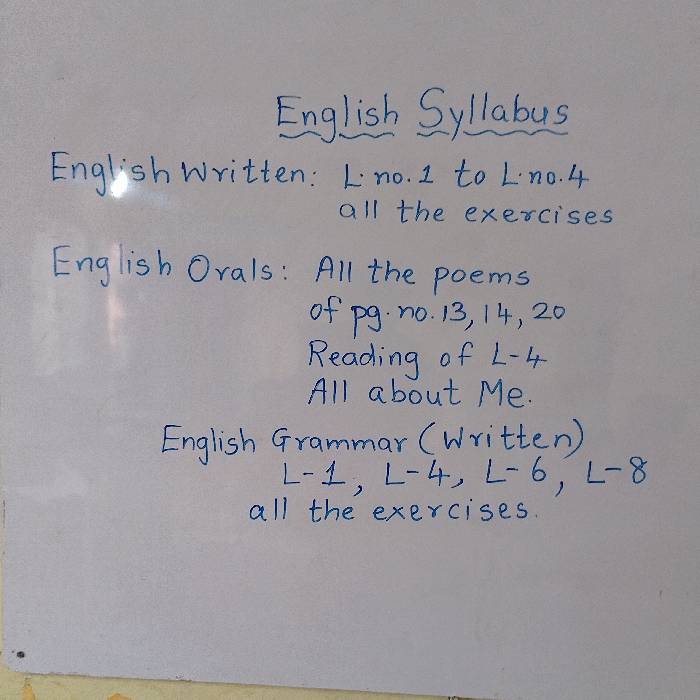 English Syllabus
English Written: L.no.1 to L.no.4
all the exercises
English Orals: All the poems
of pg.no.13, 14, 20
Reading of L-4
All about Me.
English Grammar (Written)
L-1, L-4, L-6, L-8
all the exercises.